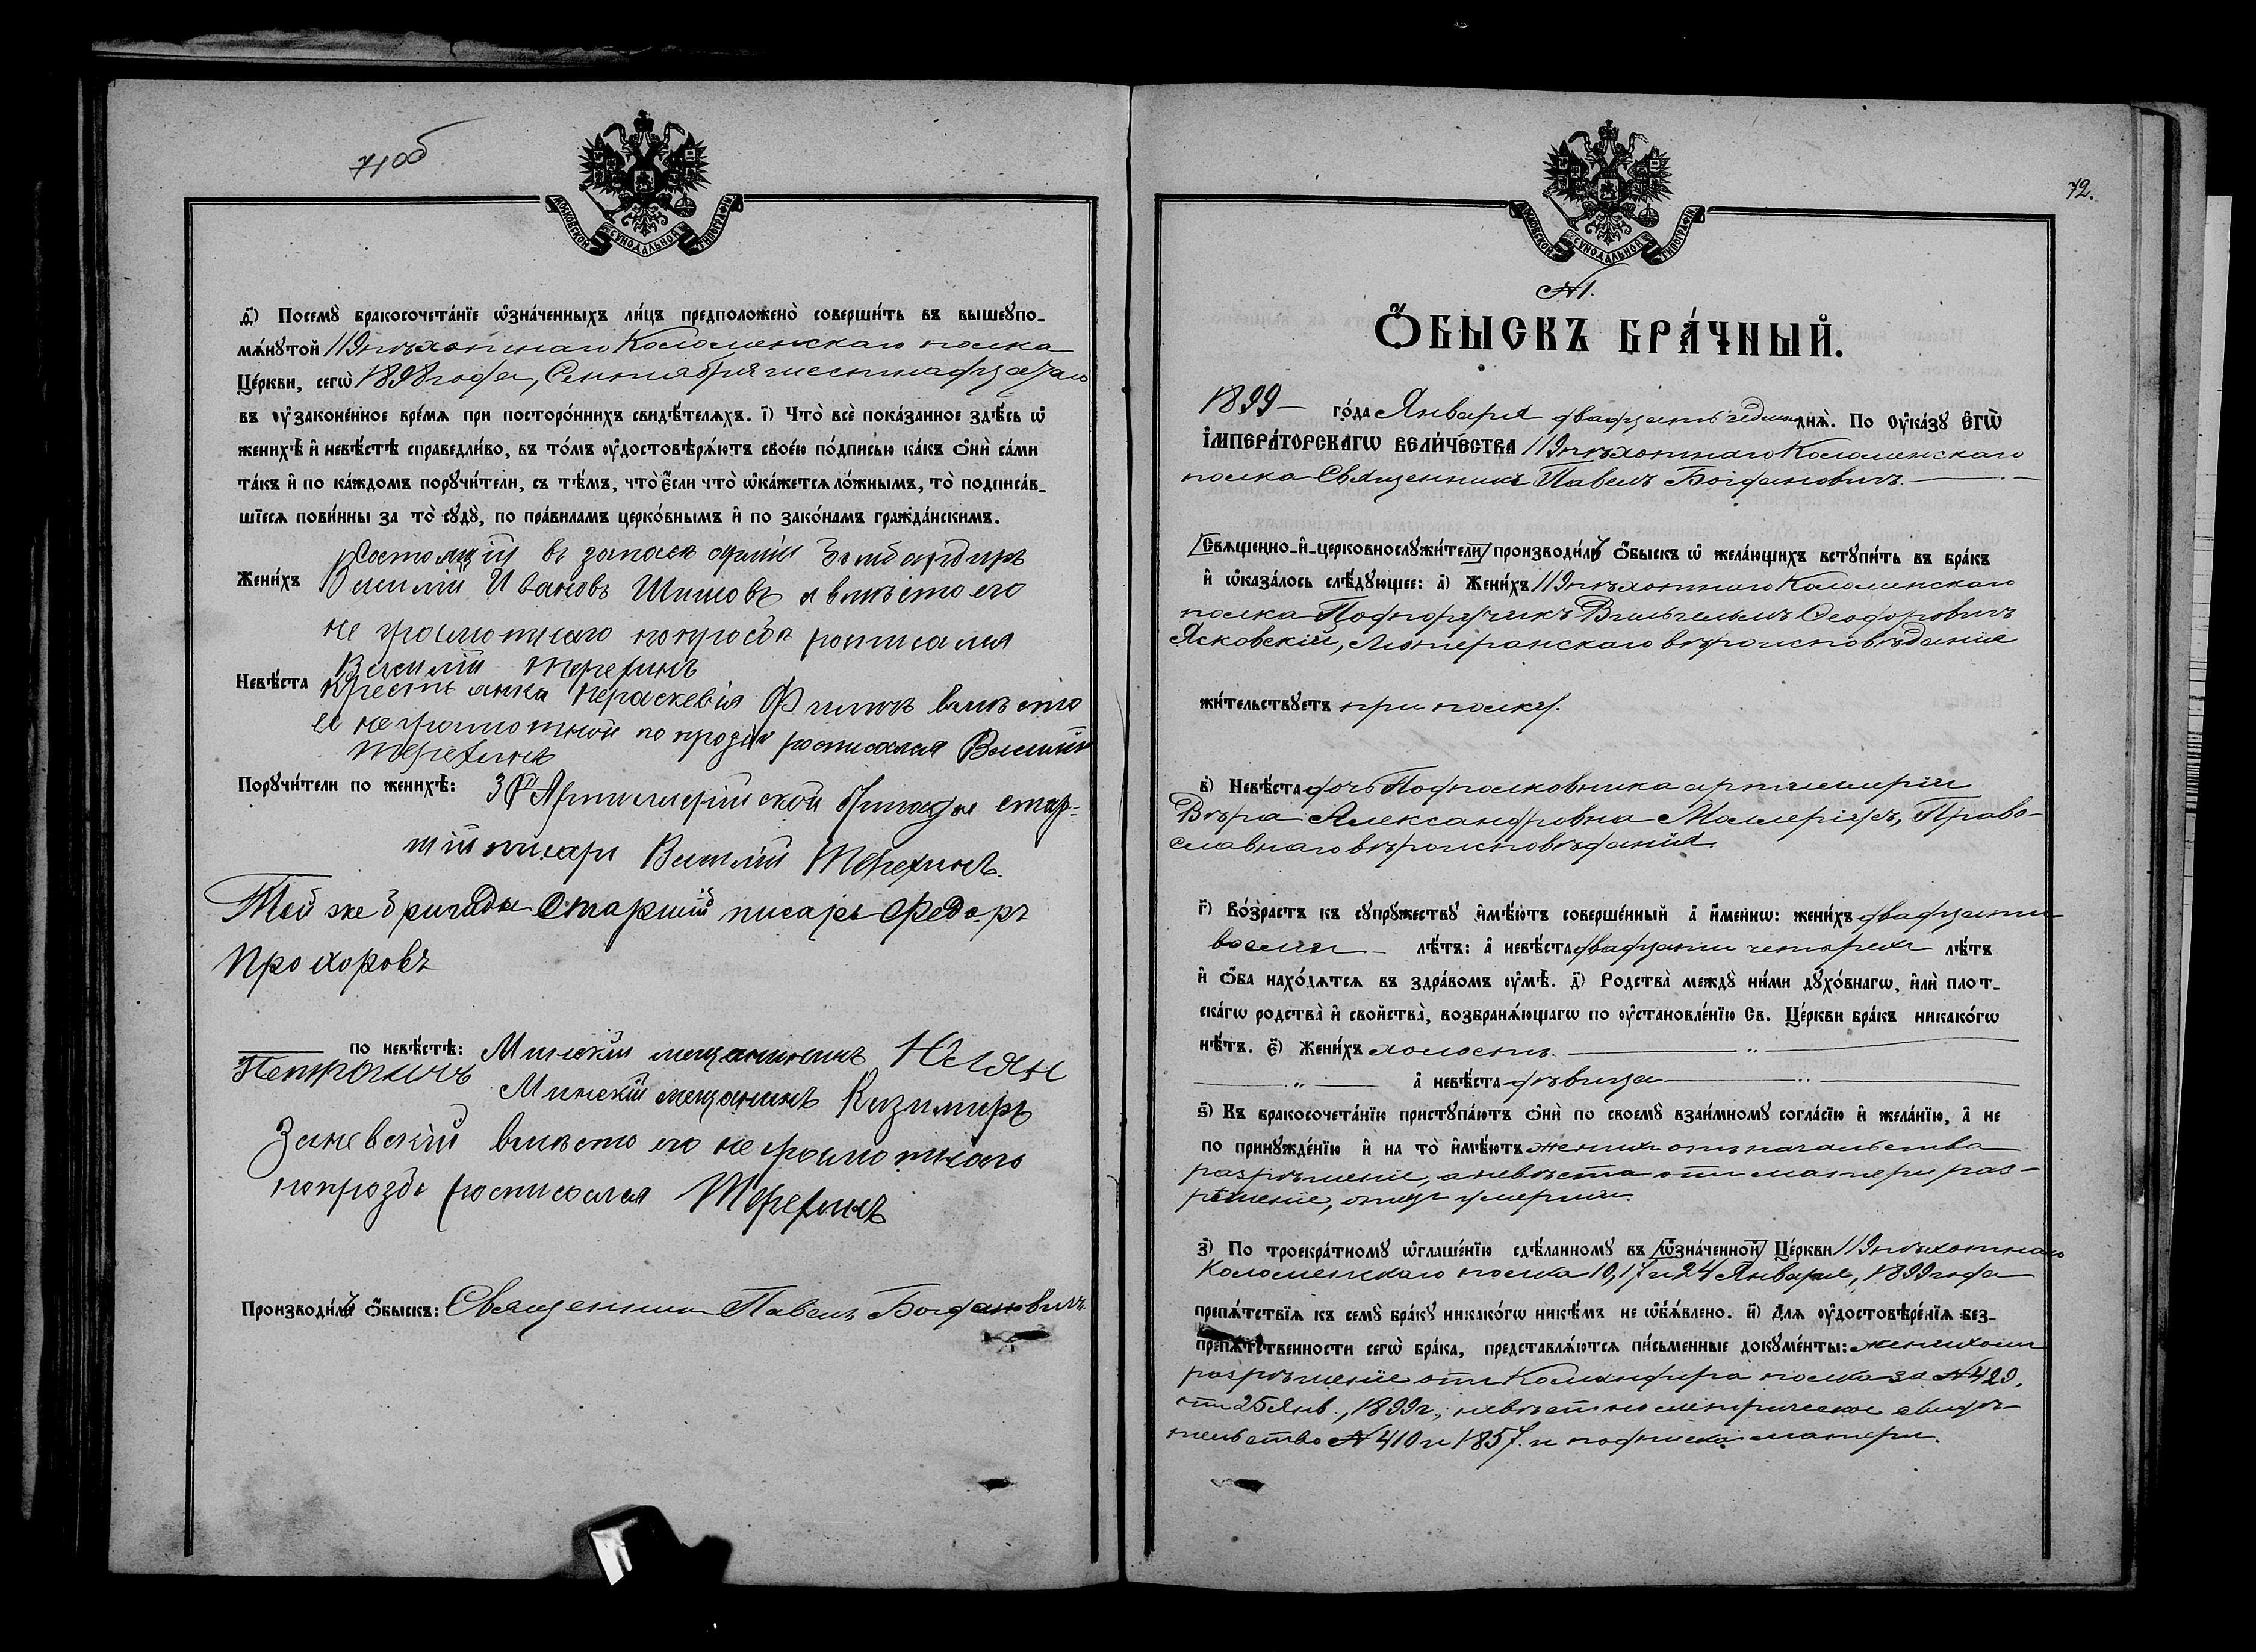 71об
МОСКОВСКОЙ СУНОДАЛЬНОЙ ТИПОГРАФІИ
Посемꙋ̀ бракосочета́нїе ѡ҆зна́ченныхъ ли́цъ предположено̀ соверши́ть въ вышеꙋпо-
мѧ́нꙋтой 119 пѣхотнаго Коломенскаго полка
Це́ркви, сегѡ̀ 1898 года, Сентября шестнадцатаго
въ ᲂу҆зако́не́нное вре́мѧ при посторо́ннихъ свидѣ́телѧхъ. і҃) Что̀ всѐ пока́занное здѣ́сь ѡ҆
женихѣ̀ и҆ невѣ́стѣ справедли́во, въ то́мъ ᲂу҆достовѣрѧ́ютъ свое́ю по́дписью ка́къ ѻ҆нѝ са́ми
та́къ и҆ по ка́ждомъ порꙋчи́тели, съ тѣ́мъ, что̀ є҆́сли что̀ ѡ҆ка́жетсѧ ло́жнымъ, то̀ подписа́в-
шїесѧ пови́нны за то̀ сꙋдꙋ̀, по пра́виламъ церко́внымъ и҆ по зако́намъ гражда́нскимъ.
Состоящій въ запасѣ арміи Бомбардиръ
Жени́хъ Василій Ивановъ Шишовъ а вмѣсто его
не грамотнаго попросбѣ росписался
Василій Терехинъ
Невѣ́ста Крестьянка Пераскевія вмѣсто
ее неграмотной по прозбѣ росписался Василій
Терехинъ
Порꙋчи́тели по женихѣ̀: 30й Артиллерійской бригады стар-
шій писарь Василій Терехинъ.
Той же бригады Старшій писарь Федоръ
Прохоровъ
по невѣ́стѣ: Минскій мещанинъ Юліян
Петрович
Минскій мещанинъ Казимиръ
Заневскій вмѣсто его не грамотнаго
попрозбѣ росписался Терехинъ
Производи́лъ ѻ҆́быскъ: Священникъ Павелъ Богдановичъ.
72.
МОСКОВСКОЙ СУНОДАЛЬНОЙ ТИПОГРАФІИ
№ 1.
Ѻ҆́БЫСКЪ БРА́ЧНЫЙ.
1899 – го́да Января двадцать седьмаго днѧ̀. По Оу҆ка́зꙋ Є҆ГѠ̀
І҆МПЕРА́ТОРСКАГѠ ВЕЛИ́ЧЕСТВА 119 пѣхотнаго Коломенскаго
полка Священникъ Павелъ Богдановичъ.
Свѧще́нно-и҆-церковнослꙋжи́тели производи́лъ ѻ҆́быскъ ѡ҆ жела́ющихъ встꙋпи́ть въ бра́къ
и҆ ѡ҆каза́лось слѣ́дꙋющее: а҃) Жени́хъ 119 пѣхотнаго Коломенскаго
полка Подпоручикъ Вильгельмъ Ѳеодоровичъ
Ясковскій, Лютеранскаго вѣроисповѣданія
жи́тельствꙋетъ при полку.
в҃) Невѣ́ста дочь Подполковника артиллеріи
Вѣра Александровна Маллеріусъ, Право-
славнаго вѣроисповѣданія.
г҃) Во́зрастъ къ сꙋпрꙋ́жествꙋ и҆мѣ́ютъ соверше́нный а҆ и҆́менно: жени́хъ двадцати
восьми – лѣ́тъ: а҆ невѣ́ста двадцати четырехъ лѣ́тъ
и҆ ѻ҆́ба нахо́дѧтсѧ въ здра́вомъ ᲂу҆мѣ̀. д҃) Родства̀ междꙋ̀ ни́ми дꙋхо́внагѡ, и҆лѝ пло́т-
скагѡ родства̀ и҆ сво́йства̀, возбранѧ́ющагѡ по ᲂу҆становле́нїю Св. Це́ркви бра́къ никако́гѡ
нѣ́тъ. є҃) Жени́хъ холостъ.
а҆ невѣ́ста дѣвица
ѕ҃) Къ бракосочета́нїю пристꙋпа́ютъ ѻ҆нѝ по своемꙋ̀ взаи́мномꙋ согла́сїю и҆ жела́нїю, а҆ не
по принꙋжде́нїю и҆ на то̀ и҆мѣ́ютъ женихъ отъ начальства
разрѣшеніе, а невѣста отъ матери раз-
рѣшеніе, отецъ умерши.
з҃) По троекра́тномꙋ ѡ҆глаше́нїю сдѣ́ланномꙋ въ ѡ҆зна́ченной Це́ркви 119 пѣхотнаго
Коломенскаго полка 10, 17 и 24 Января, 1899 года
препѧ́тствїѧ къ семꙋ̀ бра́кꙋ никако́гѡ никѣ́мъ не ѡ҆б̾ѧ́влено. и҃) Длѧ ᲂу҆достовѣре́нїѧ без-
препѧ́тственности сегѡ̀ бра́ка, представлѧ́ютсѧ пи́сьменные докꙋме́нты: женихомъ
разрѣшеніе отъ Командира полка за № 429,
отъ 25 Янв., 1899 г., невѣстою метрическое свидѣ-
тельство № 410 и 1857. и подписка матери.